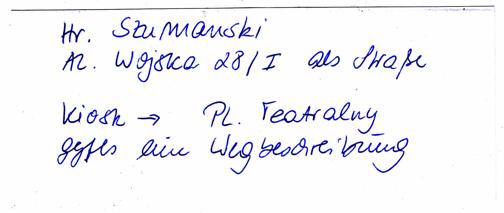 Hr. Szumanski
Al. Wojska 28/I als Straße
Kiosk → Pl. Teatralny
eine Wegbeschreibung